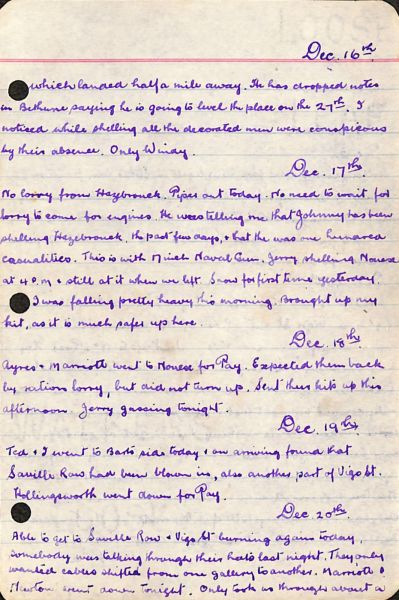 Dec. 16th
which landed half a mile away. He has dropped notes
in Bethune saying he is going to level the place on the 27th. I
noticed while shelling all the decorated men were conspicuous
by their absence. Only Windy.
Dec. 17th.
No lorry from Hazebrouck. Pipes out today. No need to wait for
lorry to come for engines. He was telling me that Johnny has been
shelling Hazebrouck, the past few days, & that there was one hundred
casualities. This is with 17 inch Naval Gun. Jerry shelling Noeux
at 4 P.M & still at it when we left. Snow for first time yesterday.
I was falling pretty heavy this morning. Brought up my
kit, as it is much safer up here.
Dec. 18th.
Ayres & Marriott went to Noeux for Pay. Expected them back
by rations lorry, but did not turn up. Sent their kits up this
afternoon. Jerry gassing tonight.
Dec. 19th
Ted & I went to Barts side today & on arriving found that
Saville Row had been blown in, also another part of Vigo St.
Hollingsworth went down for Pay.
Dec. 20th.
Able to get to Saville Row & Vigo St burning again today,
somebody was talking through their hats last night. They only
wanted cables shifted from one gallery to another. Marriott &
Newton went down tonight. Only took us through about a